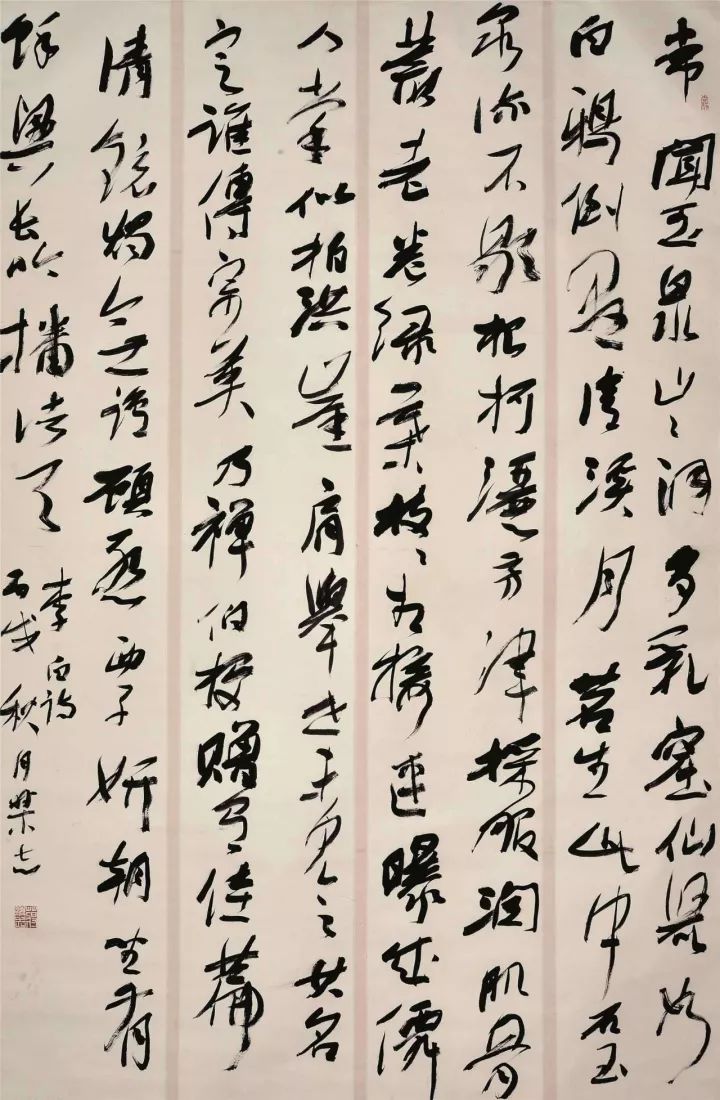 常聞玉泉山々洞多乳窟仙鼠如
白鴉倒懸清溪月茗生此中石玉
泉流不歇根柯灑芳津採服潤肌骨
叢老卷綠葉枝々相接連曝成僊
人掌似拍洪崖肩舉世未見之其名
定誰傳宗英乃禪伯投贈有佳篇
清鏡燭無鹽顧慙西子妍朝坐有
餘興長吟播諸天
李白詩
丙戌秋月